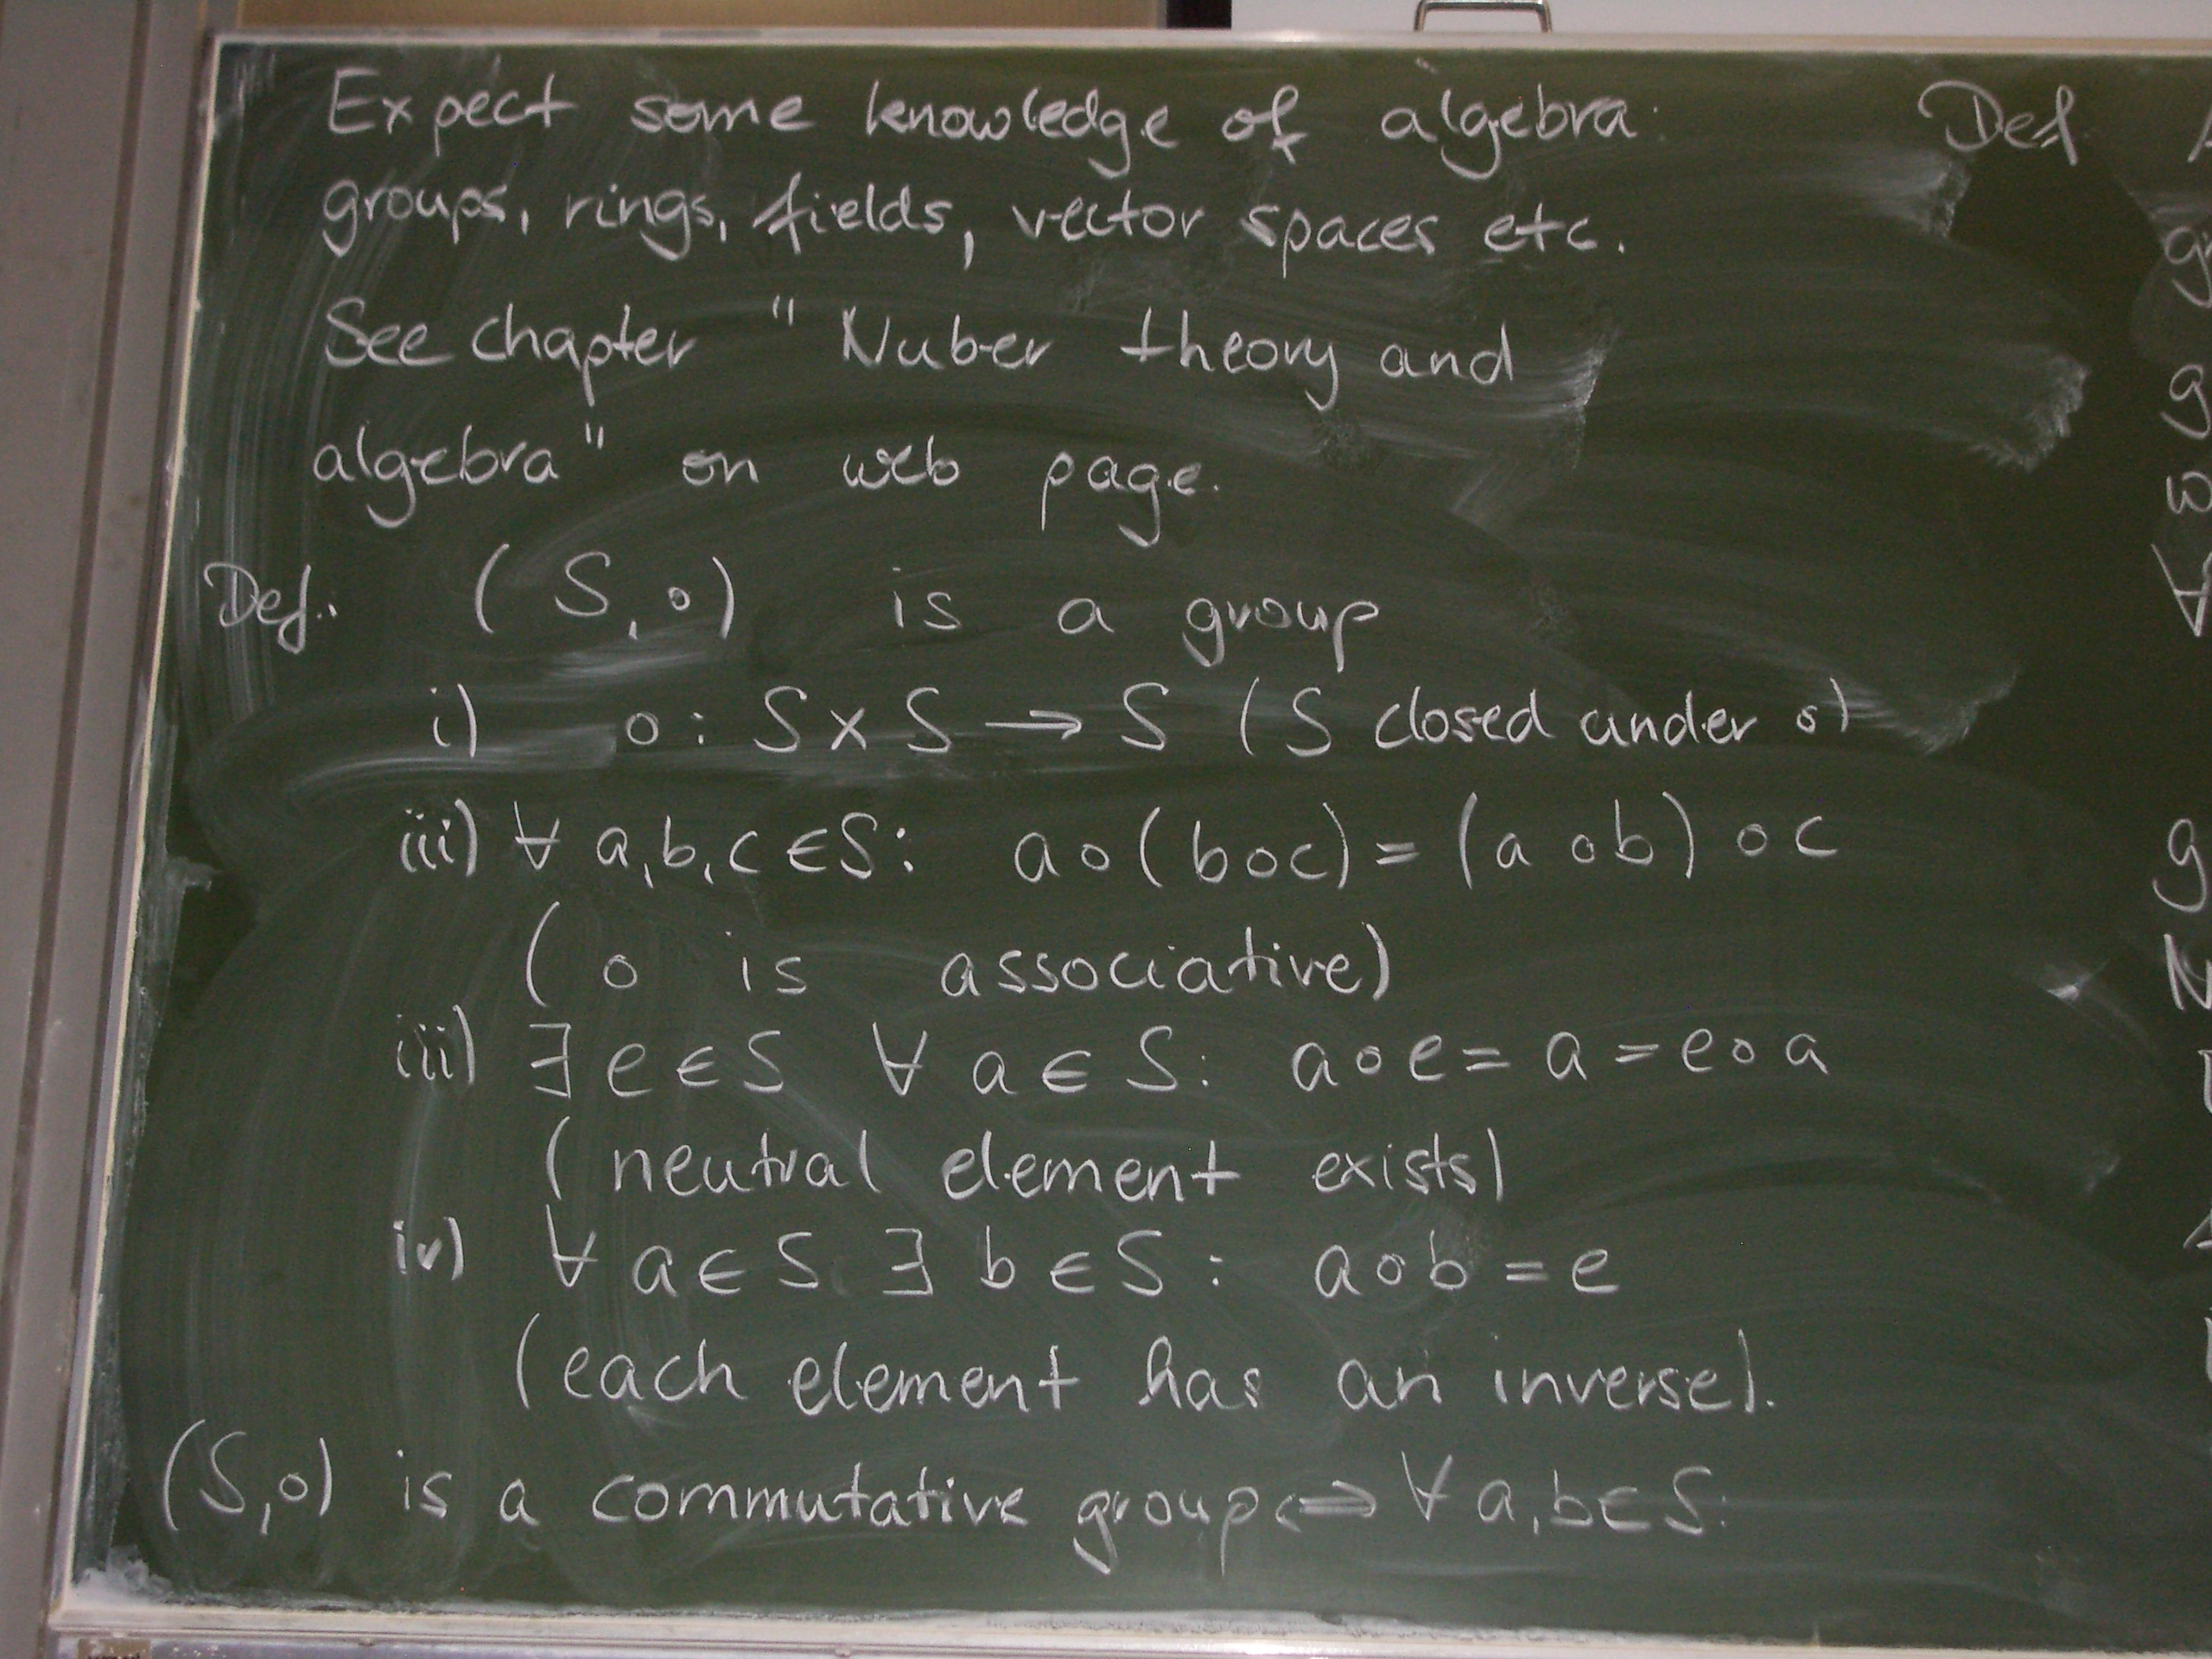 Expect some knowledge of algebra:
groups, rings, fields, vector spaces etc.
See chapter "Nuber theory and
algebra" on web page.
Def.: (S,∘) is a group
i) ∘ : S × S → S (S closed under ∘)
iii) ∀ a,b,c ∈ S: a∘(b∘c) = (a∘b)∘c
(∘ is associative)
iii) ∃ e ∈ S ∀ a ∈ S: a∘e = a = e∘a
(neutral element exists)
iv) ∀ a ∈ S ∃ b ∈ S : a∘b = e
(each element has an inverse).
(S,∘) is a commutative group ⇔ ∀ a,b ∈ S:
Def
g
g
w
∀
g